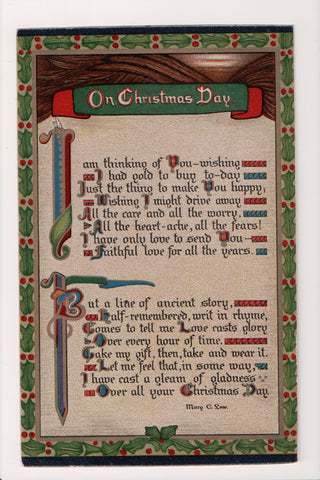 On Christmas Day.
I am thinking of You—wishing
I had gold to buy to-day
Just the thing to make You happy;
Wishing I might drive away
All the care and all the worry,
All the heart-ache, all the fears!
I have only love to send You—
Faithful love for all the years.
But a line of ancient story,
Half-remembered, writ in rhyme,
Comes to tell me Love casts glory
Over every hour of time.
Take my gift, then, take and wear it.
Let me feel that, in some way,
I have cast a gleam of gladness
Over all your Christmas Day
Mary C. Low.